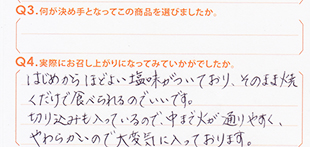 Q3.何が決め手となってこの商品を選びましたか。
Q4.実際にお召し上がりになってみていかがでしたか。
はじめからほどよい塩味がついており、そのまま焼
くだけで食べられるのでいいです。
切り込みも入っているので、中まで火が通りやすく、
やわらかいので大変気に入っております。